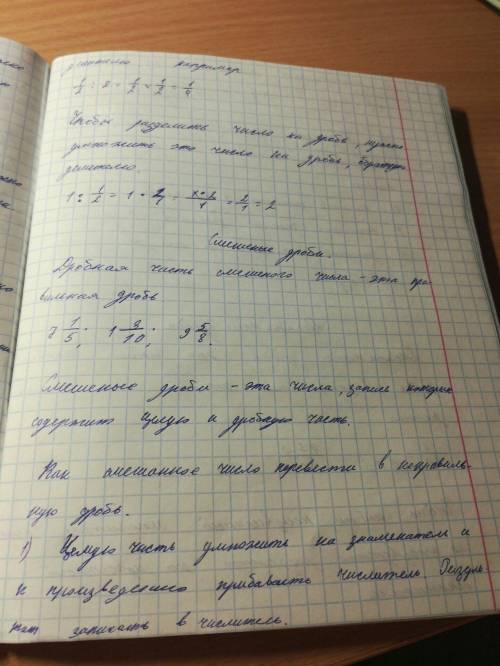 делителю например
1/2 : 2 = 1/2 × 1/2 = 1/4
Чтобы разделить число на дробь, нужно
умножить это число на дробь, обратную
делителю
1 : 1/2 = 1 · 2/1 = 1·2/1 = 2/1 = 2
Смешеные дроби.
Дробная часть смешеного числа - эта пра-
вильная дробь
7 1/5; 1 3/10; 9 5/8.
Смешеные дроби - эта числа, запись которые
содержит целую и дробную часть.
Как смешанное число перевести в неправиль-
ную дробь.
1) Целую часть умножить на знаменател и
к произведению прибавать числитель. Резуль-
тат записать в числитель.